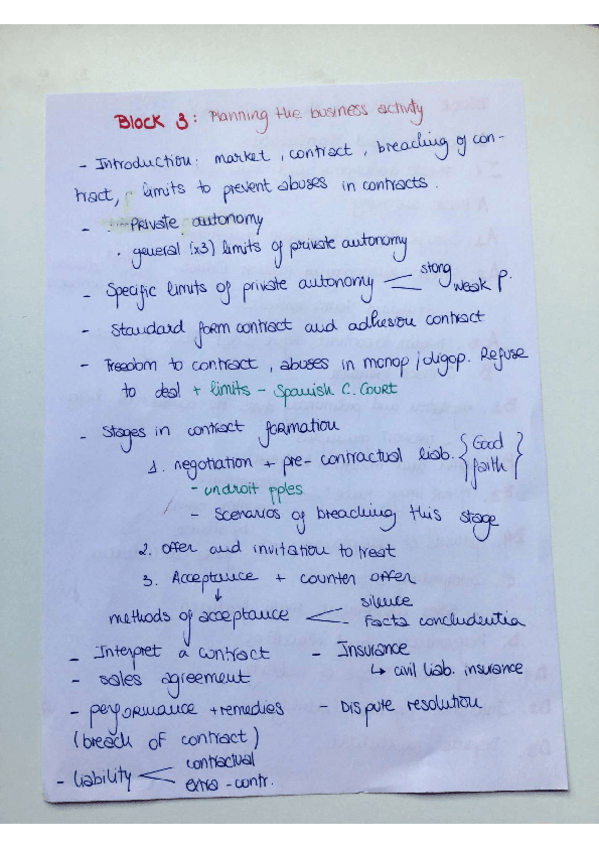 Block 3: Planning the business activity
- Introduction: market, contract, breaching of con-
tract, limits to prevent abuses in contracts.
- · Private autonomy
· general (x3) limits of private autonomy
- Specific limits of private autonomy stong weak p.
- Standard form contract and adhesion contract
- Freedom to contract, abuses in monop/oligop. Refuse
to deal + limits - Spanish C. Court
- Stages in contract formation
1. negotiation + pre-contractual liab. { Good faith }
- undroit pples
- Scenarios of breaching this stage
2. Offer and invitation to treat
3. Acceptance + counter offer
↓
methods of acceptance silence
- Facta concludentia
- Interpret a contract - Insurance
↳ civil liab. insurance
- sales agreement
- performance + remedies - Dispute resolution
(breach of contract)
- liability contractual
extra-contr.